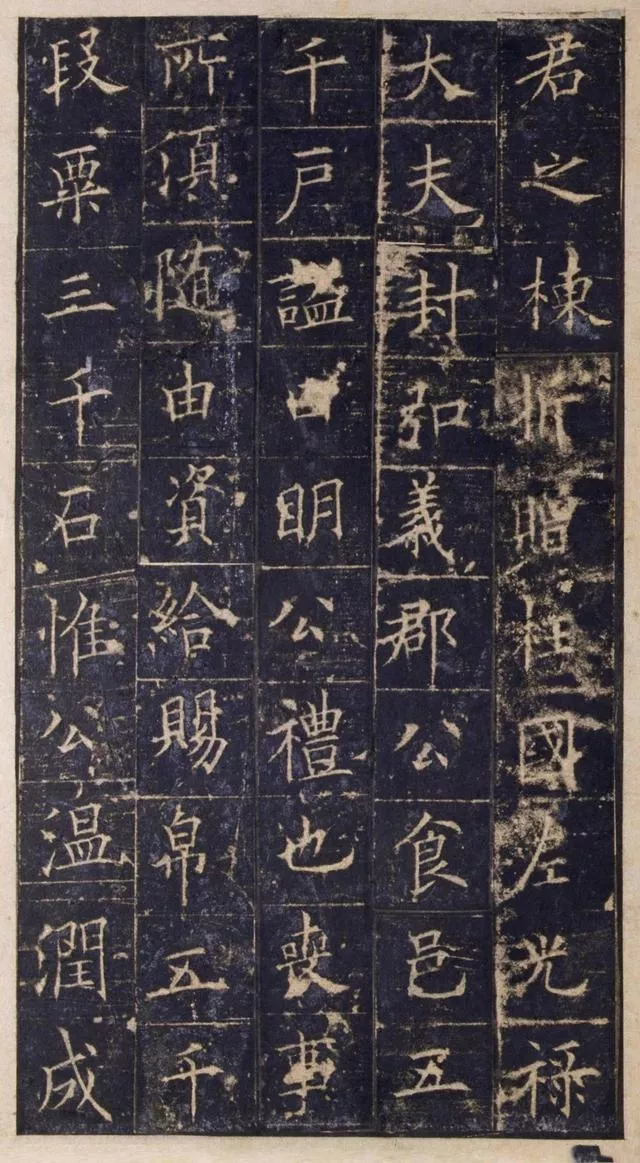 君之棟折贈柱國左光祿
大夫封弘義郡公食邑五
千戶謚曰明公禮也喪事
所須隨由資給賜帛五千
段粟三千石惟公溫潤成